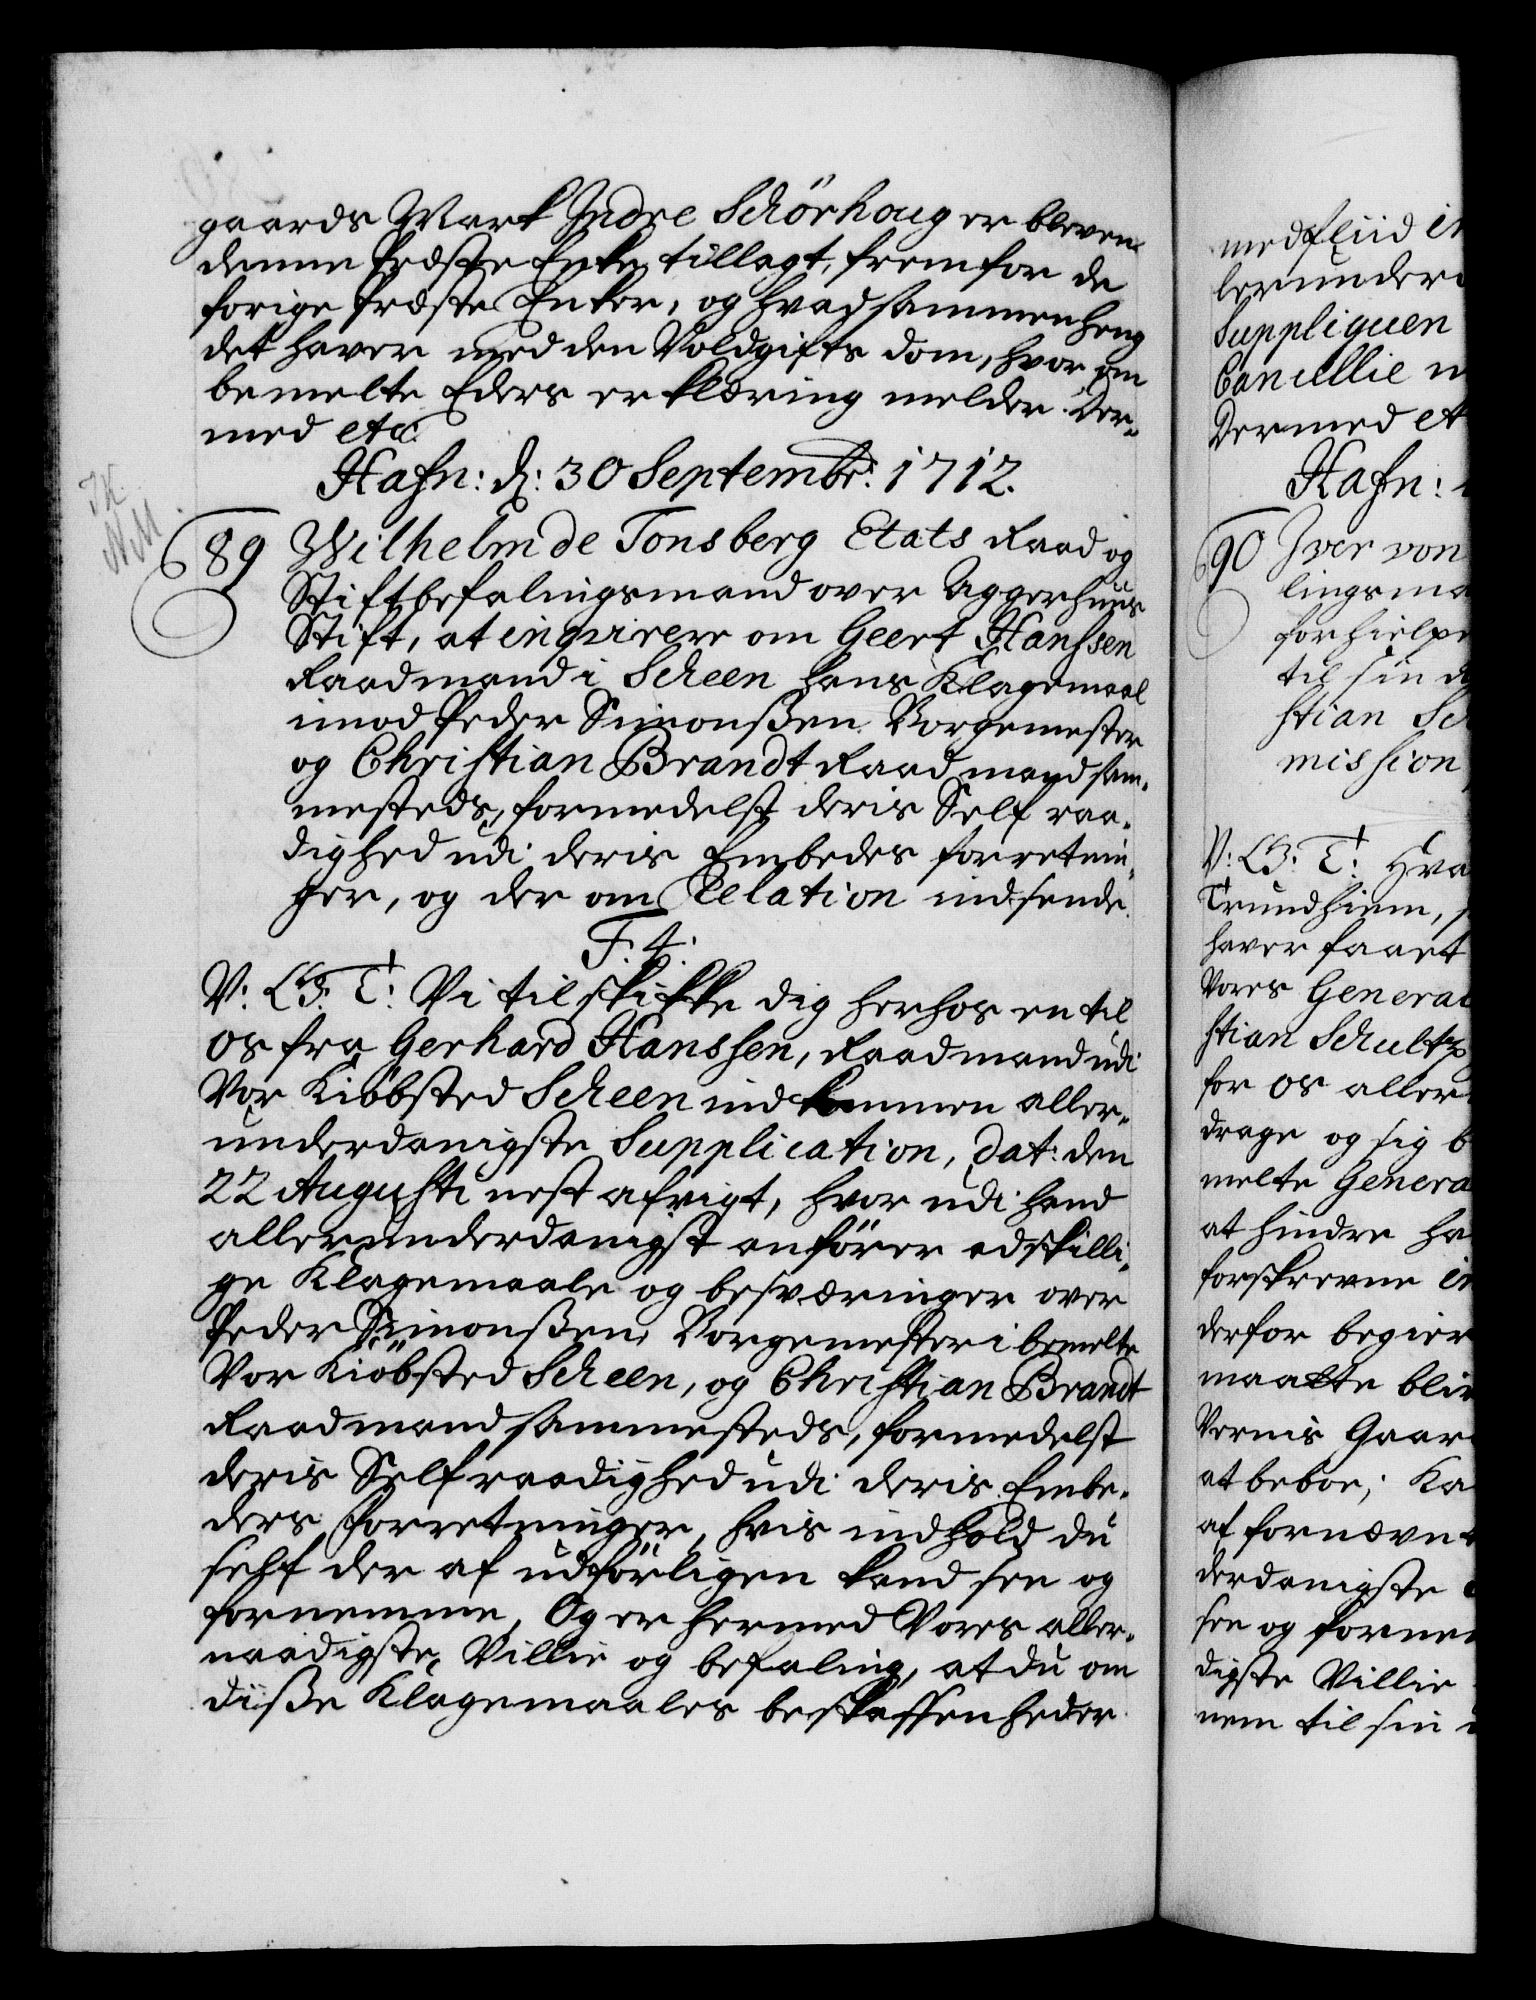 gaards Mark Indre Schörhoug er bleven
denne Præste Enke tillagt, fremfor de
forige Præste Enker, og hvad sammenheng
det haver med den Voldgifts dom, hvor om
bemelte Eders erklæring melder. Der-
med etc:
Hafn: d: 30 Septembr: 1712.
689 Wilhelm de Tonsberg Etats Raad og
Stiftbefalingsmand over Aggerhuus
Stift, at inqvirere om Geert Hanssen
Raadmand i Scheen hans Klagemaal
imod Peder Simonßen Borgemester
og Christian Brandt Raadmand sam-
mesteds, formedelst deris Self raa-
dighed udi deris Embedes forretnin-
ger, og der om Relation indsende.
F. 4.
V: G: T: Vi tilskikke dig herhos en til
os fra Gerhard Hanssen, Raadmand udi
Vor Kiöbsted Scheen indkommen aller-
underdanigste Supplication, dat: den
22 Augusti nest afvigt, hvor udi hand
allerunderdanigst anfører adskilli-
ge Klagemaale og besværinger over
Peder Simonßen, Borgemester i bemelte
Vor Kiöbsted Scheen, og Christian Brandt
Raadmand sammesteds, formedelst
deris Selfraadighed udi deris Embe-
ders Forretninger, hvis indhold du
self der af udførligen kand see og
fornemme, Og er hermed Vores aller-
naadigste Villie og befaling, at du om
diße Klagemaales beskaffenheder
med fliid in
lerunder
Suppliquen
Cancellie
Dermed et
Hafn:
690 Iver von
lingsma
forhielpe
til sin
stian Sch
mission
V: G: T: Hva
Trundhiem,
haver faaet
Vores General
stian Schultz
for os aller
drage og sig b
melte Genera
at hindre ha
forskrevne in
derfor begier
maatte bliv
Vernis Gaar
at beboe; Ka
af fornævnt
derdanigste
see og forne
digste Villie
nem til sin